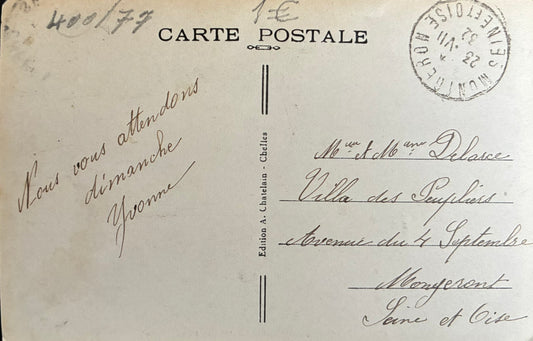 400/77
1€
CARTE POSTALE
MONTGERON SEINE ET OISE
23 · VII
32
Nous vous attendons
dimanche
Yvonne
Edition A. Chatelain - Chelles
Mr et Mme Delarce
Villa des Peupliers
Avenue du 4 Septembre
Mongeront
Seine et Oise